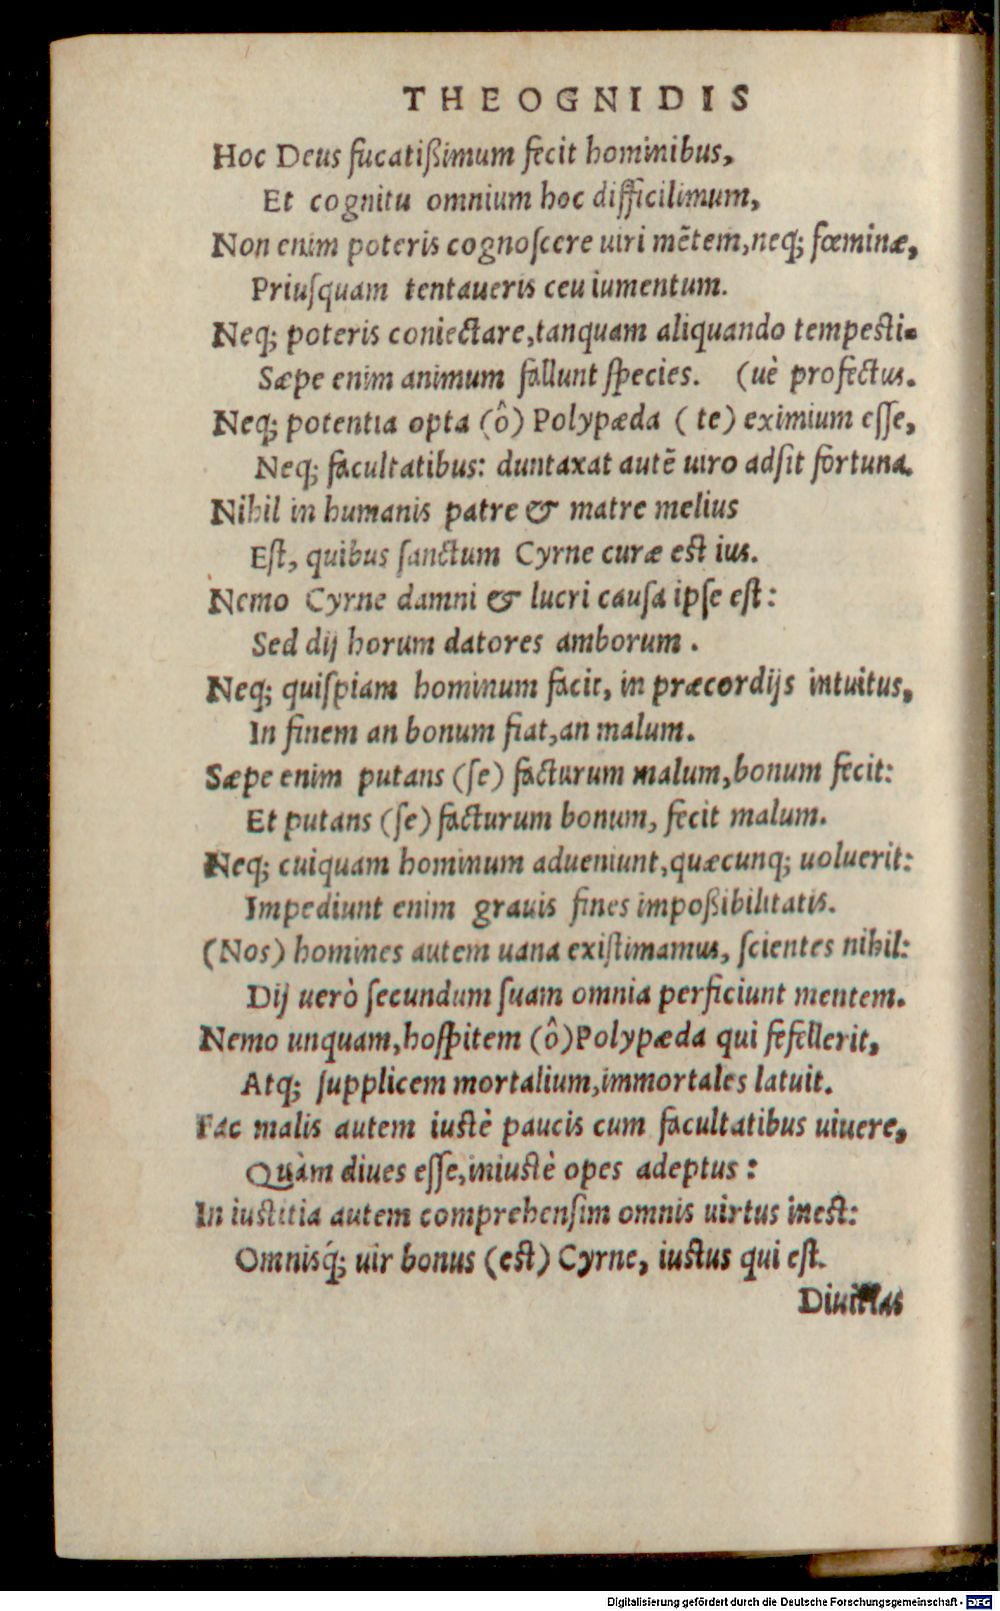 THEOGNIDIS
Hoc Deus fucatißimum fecit hominibus,
Et cognitu omnium hoc difficilimum,
Non enim poteris cognoſcere uiri mẽtem,neq; fœminæ,
Priuſquam tentaueris ceu iumentum.
Neq; poteris coniectare,tanquam aliquando tempesti-
Sæpe enim animum fallunt ſpecies. (uè profectus.
Neq; potentia opta (ô) Polypæda (te) eximium eſſe,
Neq; facultatibus: duntaxat autẽ uiro adſit fortuna.
Nihil in humanis patre & matre melius
Eſt, quibus ſanctum Cyrne curæ est ius.
Nemo Cyrne damni & lucri cauſa ipſe eſt:
Sed dij horum datores amborum.
Neq; quiſpiam hominum facit, in præcordijs intuitus,
In finem an bonum fiat,an malum.
Sæpe enim putans (ſe) facturum malum,bonum fecit:
Et putans (ſe) facturum bonum, fecit malum.
Neq; cuiquam hominum adueniunt,quæcunq; uoluerit:
Impediunt enim grauis fines impoßibilitatis.
(Nos) homines autem uana exiſtimamus, ſcientes nihil:
Dij uerò ſecundum ſuam omnia perficiunt mentem.
Nemo unquam,hoſpitem (ô)Polypæda qui fefellerit,
Atq; ſupplicem mortalium,immortales latuit.
Fac malis autem iustè paucis cum facultatibus uiuere,
Quàm diues eſſe,iniustè opes adeptus:
In iustitia autem comprehenſim omnis uirtus inest:
Omnisq́; uir bonus (est) Cyrne, iustus qui eſt.
Diuitias
Digitalisierung gefördert durch die Deutsche Forschungsgemeinschaft - DFG